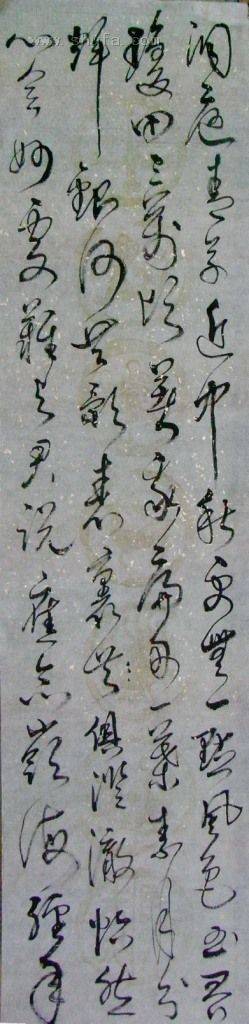 洞庭青草近中秋更無一點風色玉界
瓊田三萬頃著我扁舟一葉素月分
輝銀河共影表裏共俱澄澈悠然
心會妙處難與君說應念嶺海經年